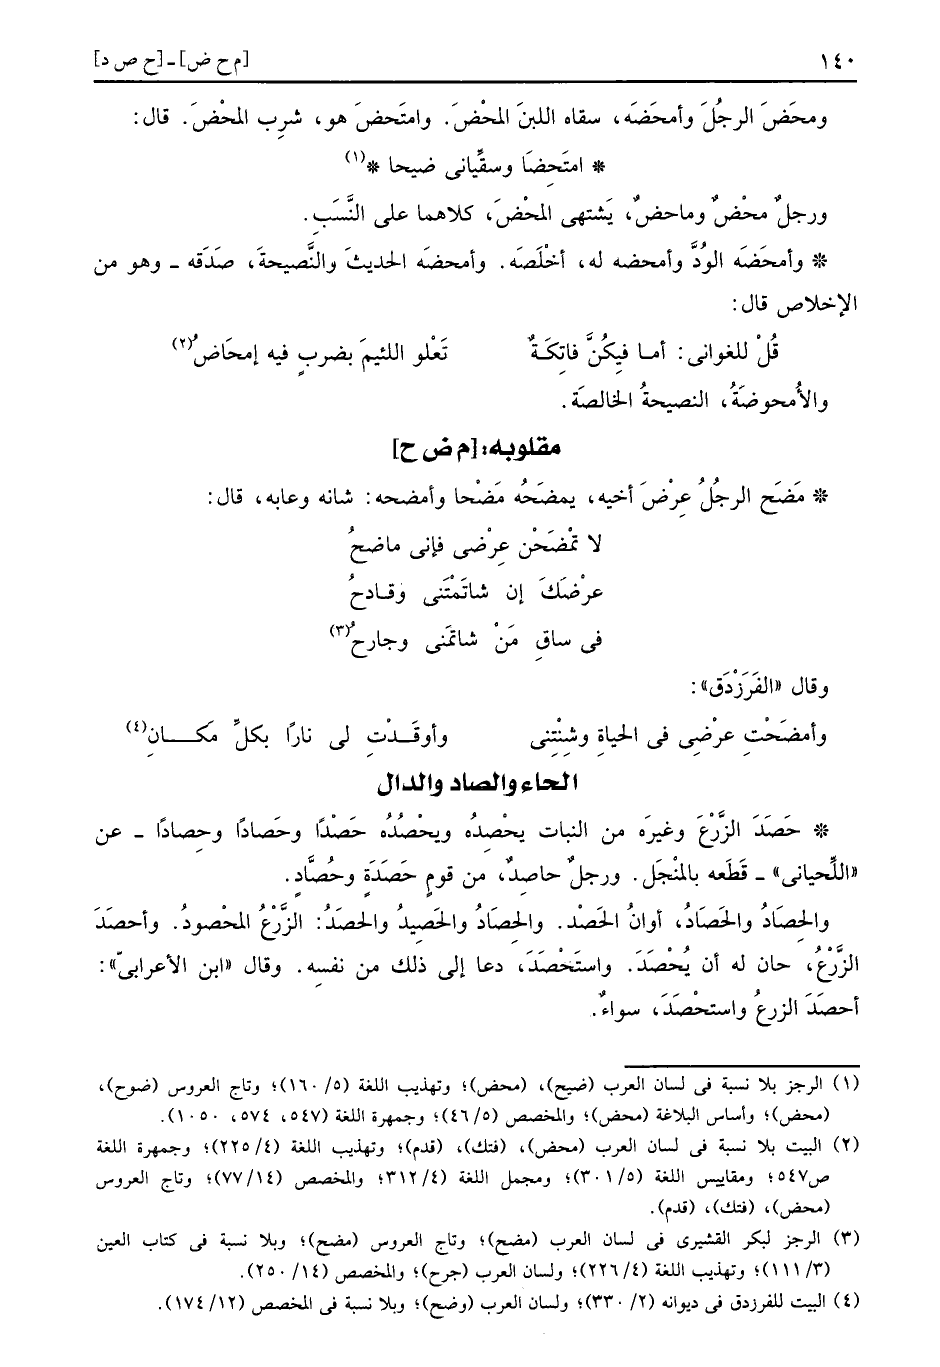 ١٤٠ [م ح ض] ـ [ح ص د]
ومحَضَ الرجُلَ وأمحَضَه، سقاه اللبنَ المحْضَ. وامتَحضَ هو، شرِب المحْضَ. قال:
* امتَحِضَا وسقِّيانى ضيحا *(١)
ورجلٌ محْضٌ وماحضٌ، يَشتهى المحْضَ، كلاهما على النَّسَبِ.
* وأمحَضَه الوُدَّ وأمحضه له، أخلَصَه. وأمحضَه الحديثَ والنَّصيحةَ، صدَقه ـ وهو من
الإخلاص قال:
قُلْ للغوانى: أما فيكُنَّ فاتِكَةٌ تَعْلو اللئيمَ بضربٍ فيه إمحَاضُ(٢)
والأُمحوضَةُ، النصيحةُ الخالصَة.
مقلوبه: [م ض ح]
* مَضَح الرجُلُ عِرْضَ أخيه، يمضَحُه مَضْحا وأمضحه: شانه وعابه، قال:
لا تمْضَحْن عِرْضى فإنى ماضحُ
عرْضَكَ إن شاتَمْتَنى وقـادحُ
فى ساقِ مَنْ شاتمَنى وجارحُ(٣)
وقال «الفَرَزْدَق»:
وأمضَحْتِ عرْضِى فى الحياةِ وشِنْتِنى وأوقَـدْتِ لى نارًا بكلِّ مكـــانِ(٤)
الحاء والصاد والدال
* حَصَدَ الزَّرْعَ وغيرَه من النبات يحْصِدُه ويحْصُدُه حَصْدًا وحَصادًا وحِصادًا ـ عن
«اللِّحيانى» ـ قَطَعه بالمنْجَل. ورجلٌ حاصدٌ، من قومٍ حَصَدَةٍ وحُصَّادٍ.
والحِصَادُ والحَصَادُ، أوانُ الحَصْد. والحِصَادُ والحَصيدُ والحصَدُ: الزَّرْعُ المحْصودُ. وأحصَدَ
الزَّرْعُ، حان له أن يُحْصَدَ. واستَحْصَدَ، دعا إلى ذلك من نفسِه. وقال «ابن الأعرابىّ»:
أحصَدَ الزرعُ واستحْصَدَ، سواءٌ.
(١) الرجز بلا نسبة فى لسان العرب (ضيح)، (محض)؛ وتهذيب اللغة (٥/ ١٦٠)؛ وتاج العروس (ضوح)،
(محض)؛ وأساس البلاغة (محض)؛ والمخصص (٤٦/٥)؛ وجمهرة اللغة (٥٤٧، ٥٧٤، ١٠٥٠).
(٢) البيت بلا نسبة فى لسان العرب (محض)، (فتك)، (قدم)؛ وتهذيب اللغة (٢٢٥/٤)؛ وجمهرة اللغة
ص٥٤٧؛ ومقاييس اللغة (٣٠١/٥)؛ ومجمل اللغة (٣١٢/٤؛ والمخصص (٧٧/١٤)؛ وتاج العروس
(محض)، (فتك)، (قدم).
(٣) الرجز لبكر القشيرى فى لسان العرب (مضح)؛ وتاج العروس (مضح)؛ وبلا نسبة فى كتاب العين
(١١١/٣)؛ وتهذيب اللغة (٢٢٦/٤)؛ ولسان العرب (جرح)؛ والمخصص (١٤/ ٢٥٠).
(٤) البيت للفرزدق فى ديوانه (٢/ ٣٣٠)؛ ولسان العرب (وضح)؛ وبلا نسبة فى المخصص (١٧٤/١٢).